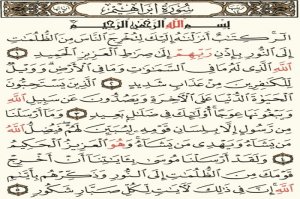 سُورَةُ إِبْرَاهِيمَ
بِسْمِ اللَّهِ الرَّحْمَٰنِ الرَّحِيمِ
الٓر كِتَٰبٌ أَنزَلْنَٰهُ إِلَيْكَ لِتُخْرِجَ النَّاسَ مِنَ الظُّلُمَٰتِ
إِلَى النُّورِ بِإِذْنِ رَبِّهِمْ إِلَىٰ صِرَٰطِ الْعَزِيزِ الْحَمِيدِ ١
اللَّهِ الَّذِي لَهُ مَا فِي السَّمَٰوَٰتِ وَمَا فِي الْأَرْضِ وَوَيْلٌ
لِّلْكَٰفِرِينَ مِنْ عَذَابٍ شَدِيدٍ ٢ الَّذِينَ يَسْتَحِبُّونَ
الْحَيَوٰةَ الدُّنْيَا عَلَى الْآخِرَةِ وَيَصُدُّونَ عَن سَبِيلِ اللَّهِ
وَيَبْغُونَهَا عِوَجًا أُولَٰٓئِكَ فِي ضَلَٰلٍ بَعِيدٍ ٣ وَمَا أَرْسَلْنَا
مِن رَّسُولٍ إِلَّا بِلِسَانِ قَوْمِهِ لِيُبَيِّنَ لَهُمْ فَيُضِلُّ اللَّهُ
مَن يَشَاءُ وَيَهْدِي مَن يَشَاءُ وَهُوَ الْعَزِيزُ الْحَكِيمُ
٤ وَلَقَدْ أَرْسَلْنَا مُوسَىٰ بِـَٔايَٰتِنَا أَنْ أَخْرِجْ
قَوْمَكَ مِنَ الظُّلُمَٰتِ إِلَى النُّورِ وَذَكِّرْهُم بِأَيَّىٰمِ
اللَّهِ إِنَّ فِي ذَٰلِكَ لَآيَٰتٍ لِّكُلِّ صَبَّارٍ شَكُورٍ ٥